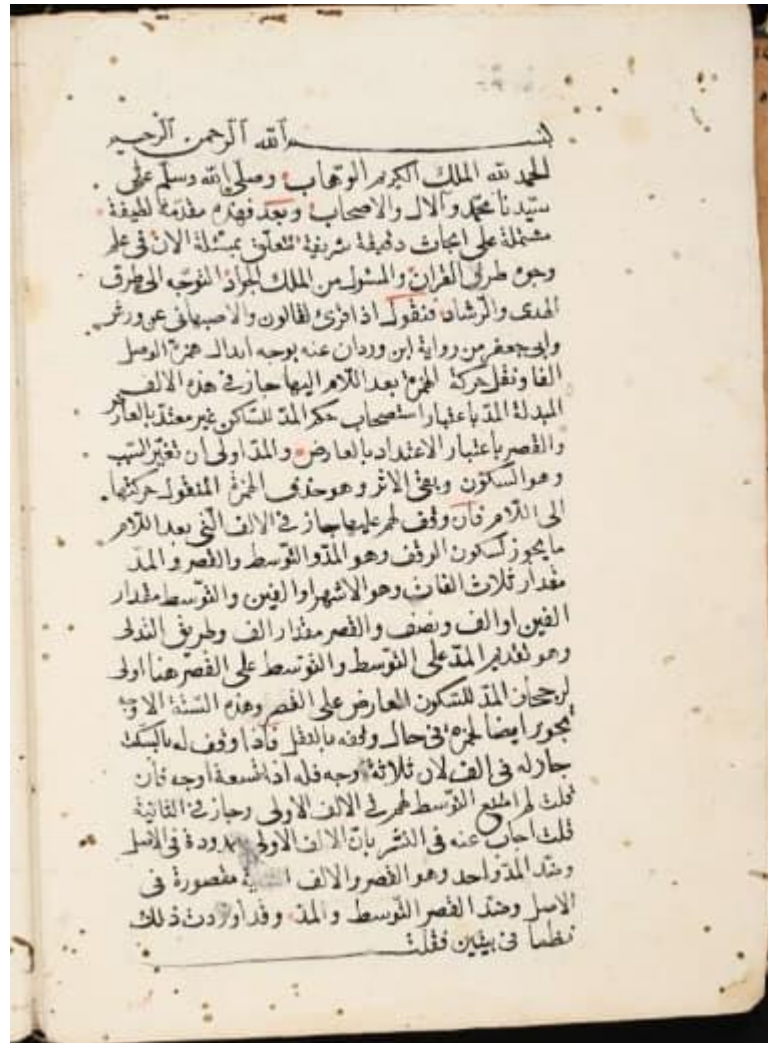 بسم الله الرحمن الرحيم
الحمد لله الملك الكريم الوهاب وصلى الله وسلم على
سيدنا محمد والال والاصحاب وبعد فهذه مقدمة لطيفة
مشتملة على ابحاث دقيقة شريفة تتعلق بمسئلة الان في علم
وجوه طرق القران والمسئول من الملك الجواد التوجه الى طرق
الهدى والرشاد فنقول اذا قرئ لقالون والاصبهاني عن ورش
وابي جعفر من رواية ابن وردان عنه بوجه ابدال همزة الوصل
الفا ونقل حركة الهمزة بعد اللام اليها جاز في هذه الالف
المبدلة المد باعتبار استصحاب حكم المد للساكن غير معتد بالعارض
والقصر باعتبار الاعتداد بالعارض والمد اولى ان تغير السبب
وهو السكون وبقي الاثر وهو حذف الهمزة المنقول حركتها
الى اللام فان وقف لهم عليها جاز في الالف التي بعد اللام
ما يجوز لسكون الوقف وهو المد والتوسط والقصر والمد
مقدار ثلاث الفات وهو الاشهر او الفين والتوسط مقدار
الفين او الف ونصف والقصر مقدار الف وطريق التدلى
وهو تقديم المد على التوسط والتوسط على القصر هنا اولى
لرجحان المد للسكون العارض على القصر وهذه الستة الاوجه
تجوز ايضا لحمزة في حال وقفه بالنقل فاذا وقف له بالسكت
جاز له في الف لان ثلاثة اوجه فله اذا تسعة اوجه فان
قلت لم امتنع التوسط لهم في الالف الاولى وجاز في الثانية
قلت اجاب عنه في النشر بان الالف الاولى ممدودة في الاصل
وضد المد واحد وهو القصر والالف مقصورة في
الاصل وضد القصر التوسط والمد وقد اوردت ذلك
نظما في بيتين فقلت